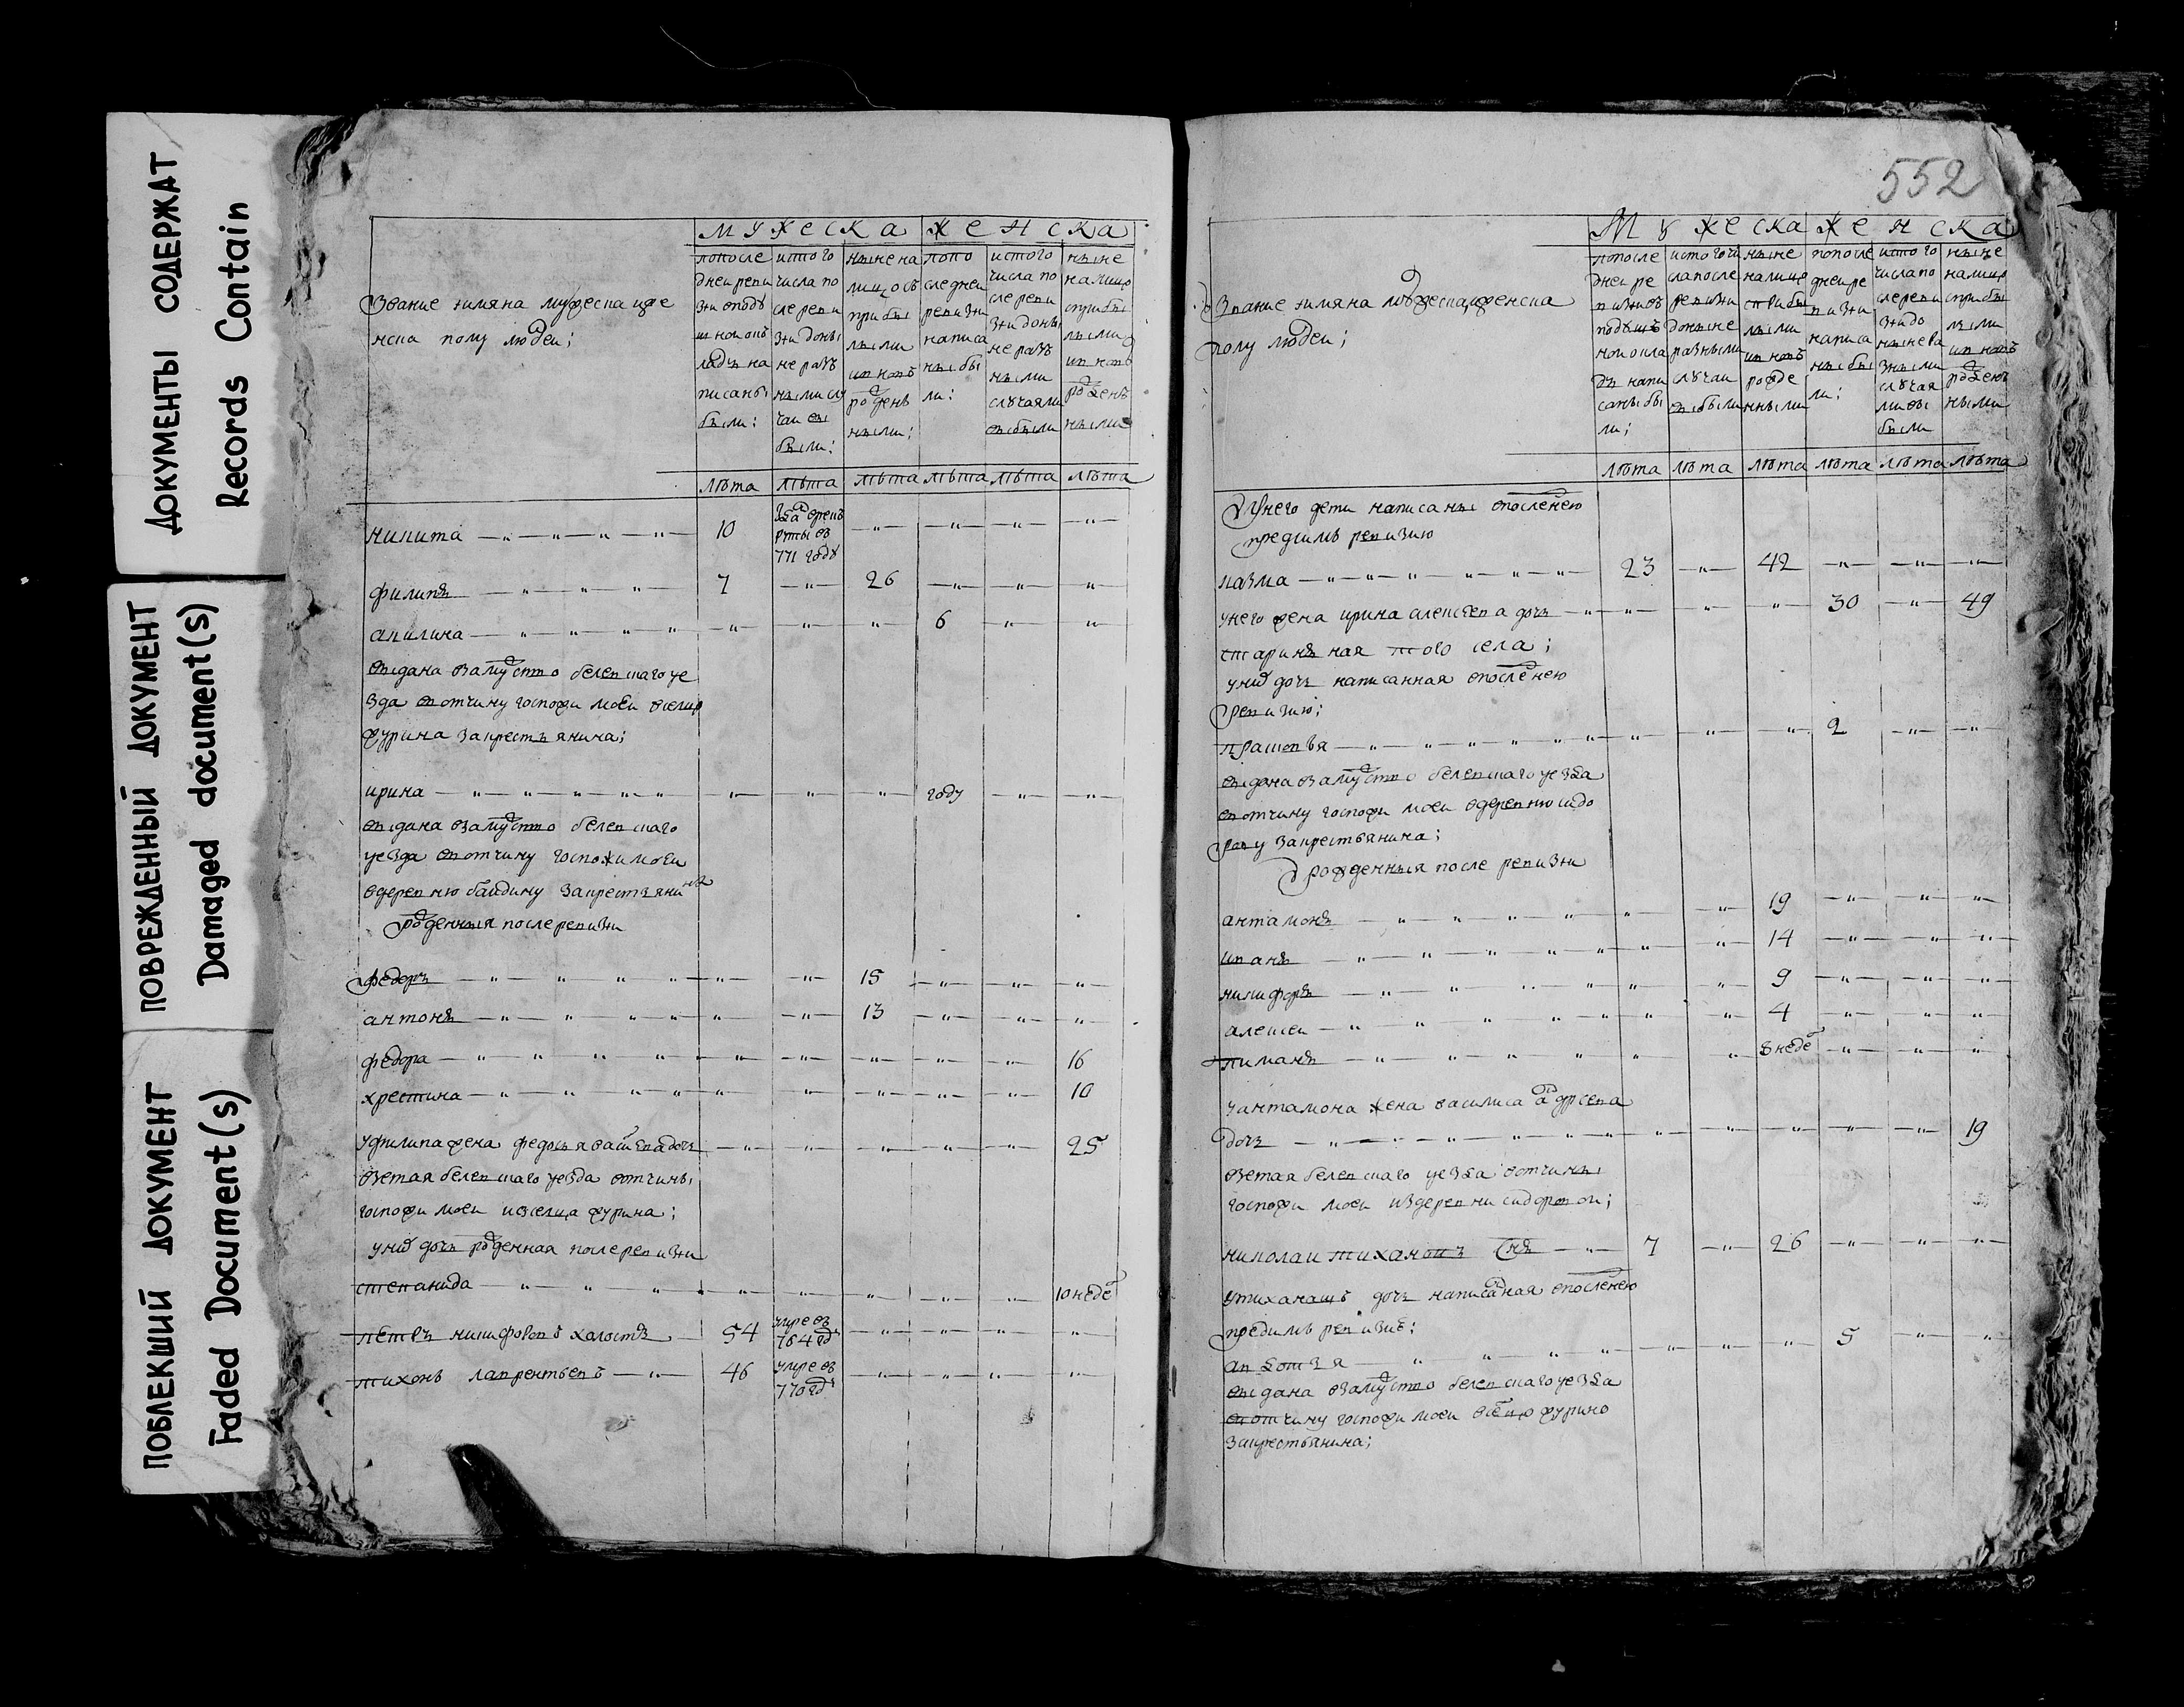 ДОКУМЕНТЫ СОДЕРЖАТ
Records Contain
ПОВРЕЖДЕННЫЙ ДОКУМЕНТ
Damaged document(s)
ПОБЛЕКШИЙ ДОКУМЕНТ
Faded Document(s)
мужеска женска
Звание имяна мужеска иже
нска полу людеи;
попосле
днеи реви
зии вподу
шнои окъ
ладъ на
писаны
были:
истого
числа по
сле реви
зии доны
не разъ
ными слу
чаи вы
были:
ныне на
лицо съ
прибы
лыми
ивновъ
рожденъ
ными;
попо
следнеи
ревизии
написа
ны бы
ли:
истого
числа по
сле реви
зии доны
не разъ
ными
случаями
выбыли
ныне
налицо
сприбы
лыми
ивновь
рожденъ
ными
лѣта лѣта лѣта лѣта лѣта лѣта
никита 10
771 году
филипъ 7 26
акилина 6
выдана взамужство белевшаго уе
зда вотчину госпожи моеи вселцо
журина закрестьянина;
ирина году
выдана взамужство белевшаго
уезда вотчину госпожи моеи
вдеревню баидину закрестьянина
рожденныя после ревизии
федоръ 15
антонъ 13
федора 16
хрестина 10
уфилипа жена федосья дочь 25
взетая белевшаго уезда вотчины
госпожи моеи изселца журина;
унихъ дочь рожденная после ревизии
степанида 10 неде
петръ никифоровъ халостъ 54 умре въ 764 год
тихонъ лаврентьевъ 46 умре въ 770 год
552
Мужеска женска
Звание имяна мужеска иженска
полу людеи;
попосле
днеи ре
визиивъ
подушъ
нои окла
дъ напи
саны бы
ли;
истого чи
сла после
ревизии
доныне
разными
случаи
выбыли
ныне
налицо
сприбы
лыми
ивновъ
рожде
нными
попосле
днеи ре
визии
написа
ны бы
ли:
истого
числа по
сле реви
зии до
ныне ра
зными
случая
ми вы
были
ныне
налицо
сприбы
лыми
ивновъ
рожденъ
ными
лѣта лѣта лѣта лѣта лѣта лѣта
Унего дети написаны впоследнею
предимъ ревизию
казма 23 42
унего жена ирина алексеева дочь 30 49
старинъная того села;
унихъ дочь написанная впоследнею
ревизию;
прасковья 2
выдана взамужство белевшаго уезда
вотчину госпожи моеи вдеревню сидо
рову закрестьянина;
рожденныя после ревизии
антамонъ 19
иванъ 14
никифоръ 9
алексеи 4
киманъ 8 неде
уантамона жена василиса
дочь 19
взетая белевшаго уезда вотчины
госпожи моеи издеревни сидоровои;
николаи тихановъ снъ 7 26
утихана дочь написанная впоследнею
предимъ ревизие:
авдотья 5
выдана взамужство белевшаго уезда
вотчину госпожи моеи вселцо журино
закрестьянина;